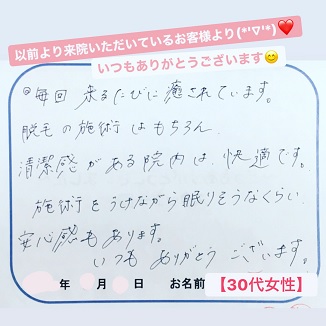 以前より来院いただいているお客様より(*'▽'*)❤️
いつもありがとうございます😊
◎毎回 来るたびに癒されています。
脱毛の施術はもちろん
清潔感がある院内は、快適です。
施術をうけながら眠りそうなくらい
安心感もあります。
いつも ありがとう ございます。
年 月 日 お名前
【30代女性】